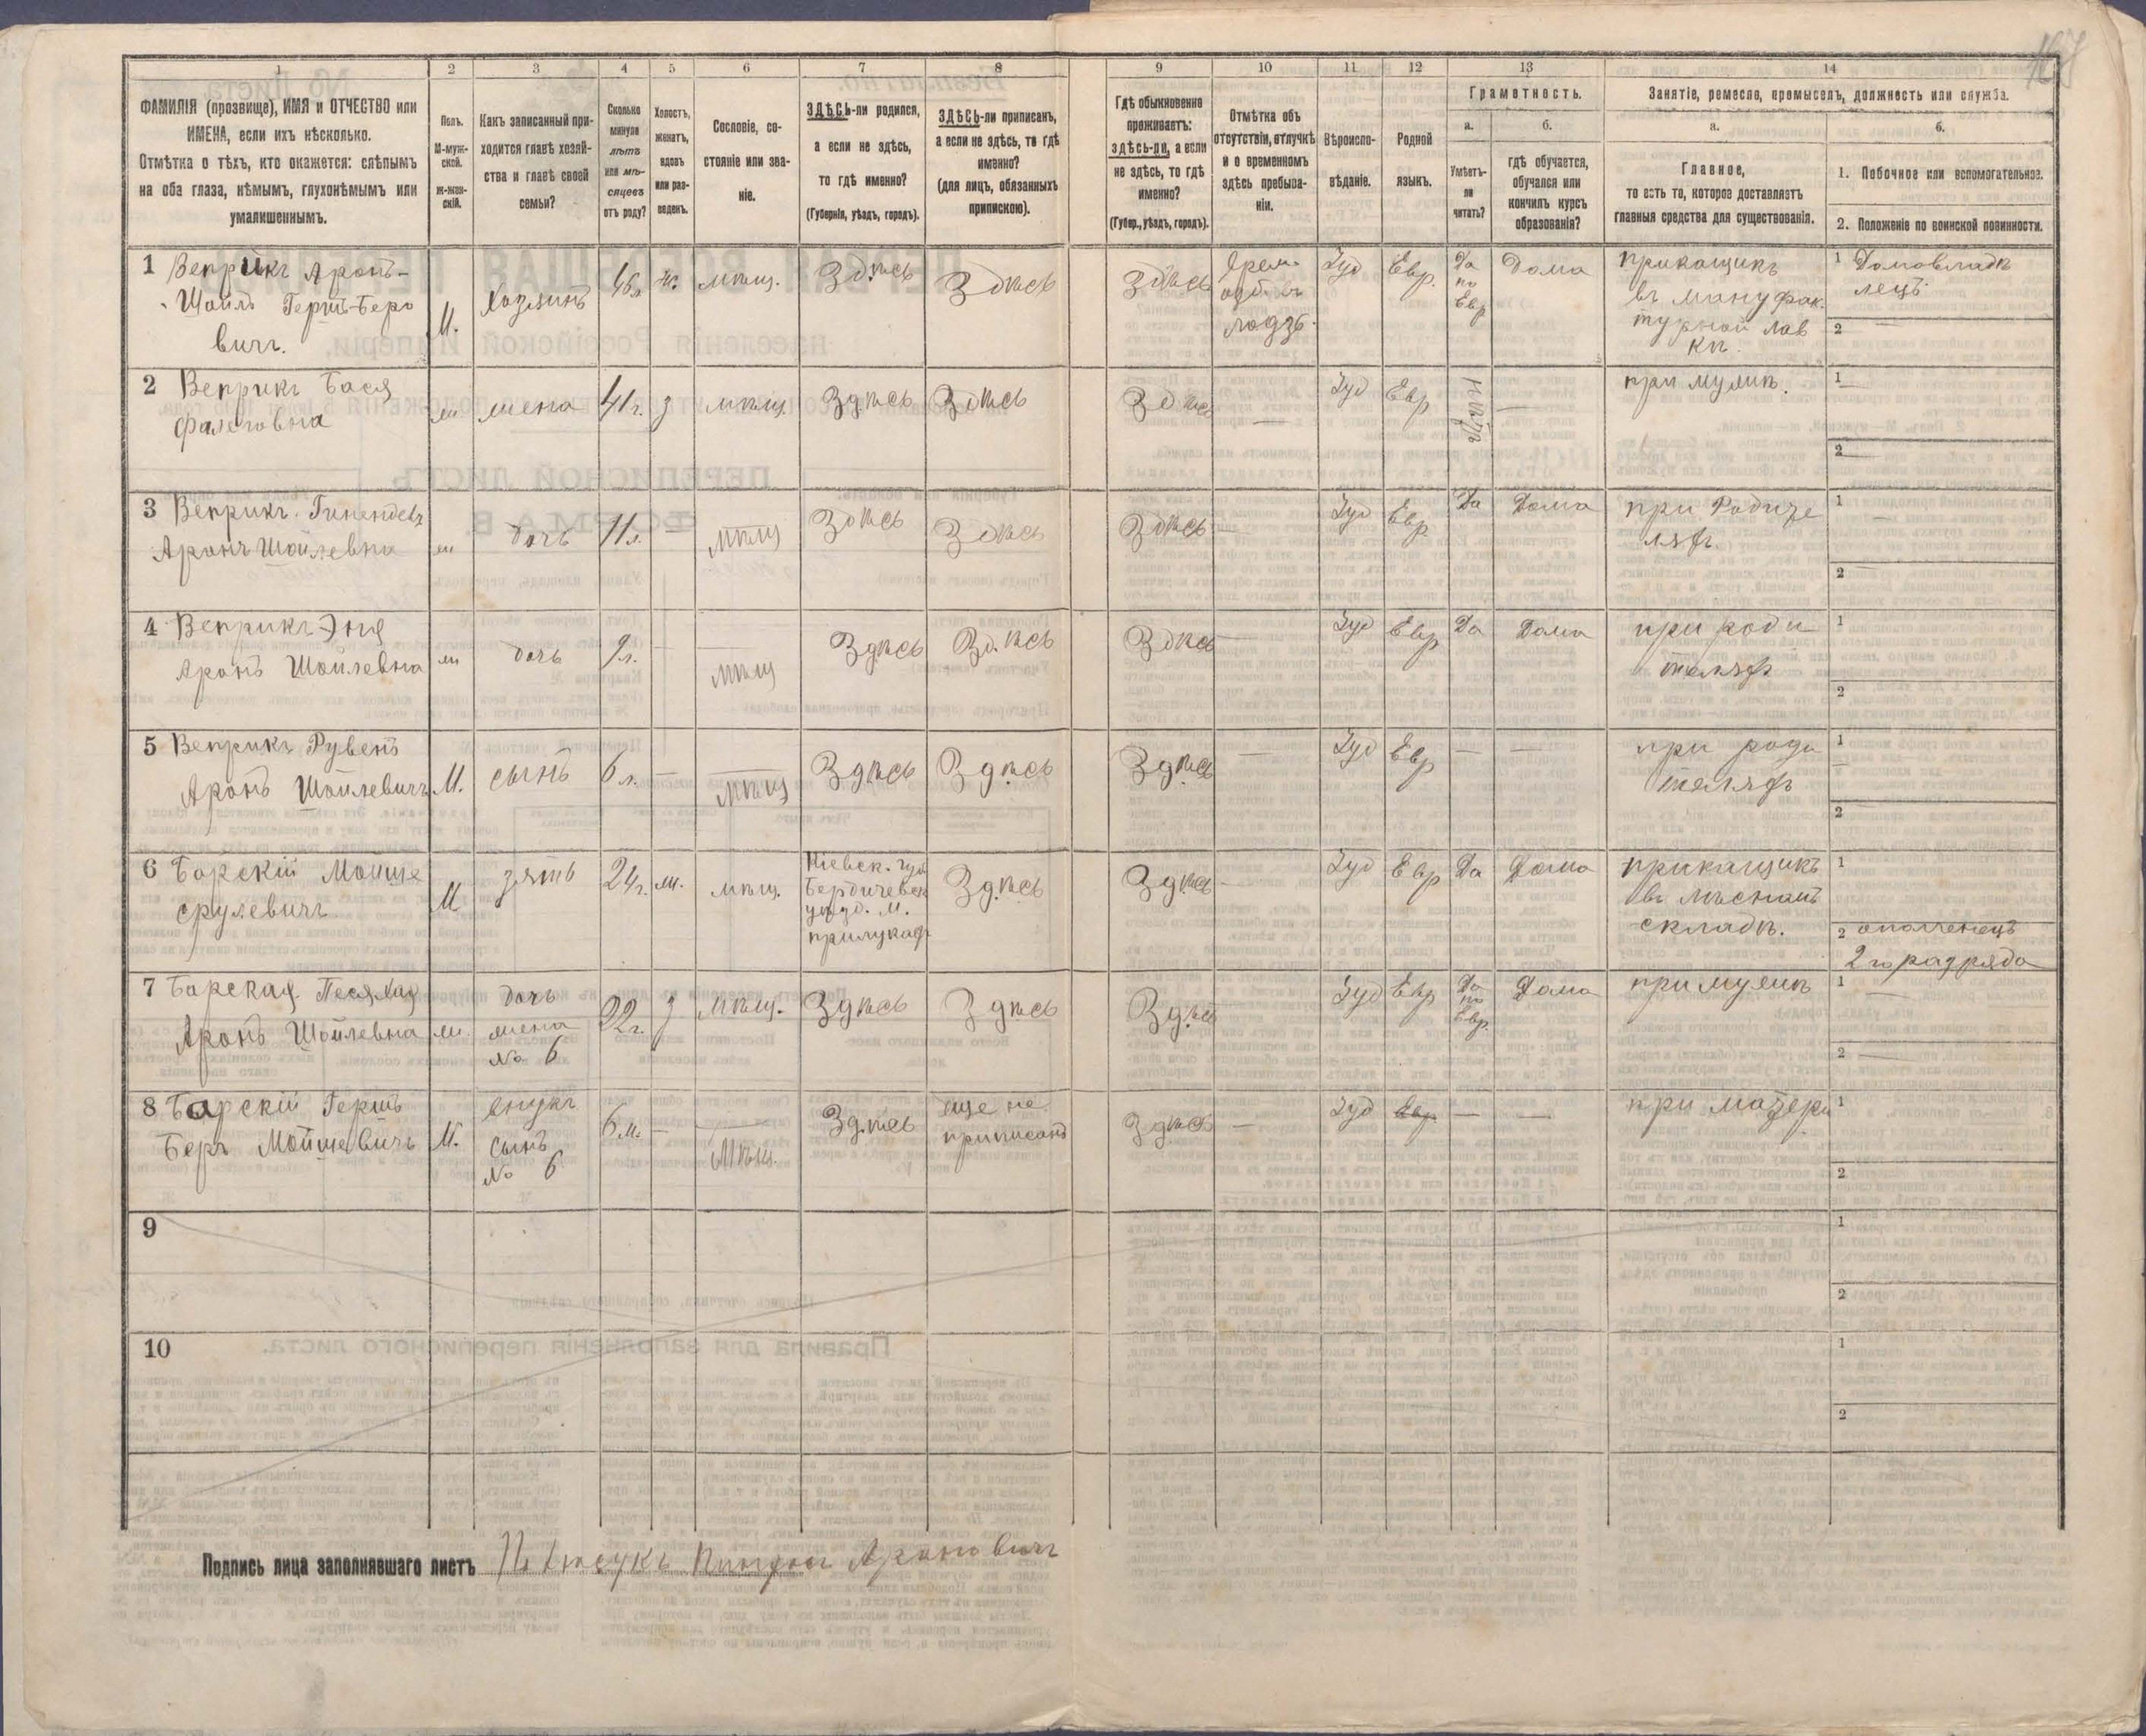 1 2 3 4 5 6 7 8 9 10 11 12 13 14
ФАМИЛІЯ (прозвище), ИМЯ и ОТЧЕСТВО или
ИМЕНА, если ихъ нѣсколько.
Отмѣтка о тѣхъ, кто окажется: слѣпымъ
на оба глаза, нѣмымъ, глухонѣмымъ или
умалишеннымъ.
Полъ.
М-муж-
ской.
ж-жен-
скій.
Какъ записанный при-
ходится главѣ хозяй-
ства и главѣ своей
семьи?
Сколько
минуло
лѣтъ
или мѣ-
сяцевъ
отъ роду?
Холостъ,
женатъ,
вдовъ
или раз-
веденъ.
Сословіе, со-
стояніе или зва-
ніе.
ЗДѢСЬ-ли родился,
а если не здѣсь,
то гдѣ именно?
(Губернія, уѣздъ, городъ).
ЗДѢСЬ-ли приписанъ,
а если не здѣсь, то гдѣ
именно?
(для лицъ, обязанныхъ
припискою).
Гдѣ обыкновенно
проживаетъ:
здѣсь-ли, а если
не здѣсь, то гдѣ
именно?
(Губер., уѣздъ, городъ).
Отмѣтка объ
отсутствіи, отлучкѣ
и о временномъ
здѣсь пребыва-
ніи.
Вѣроиспо-
вѣданіе.
Родной
языкъ.
Грамотность.
а.
Умѣетъ-
ли
читать?
б.
гдѣ обучается,
обучался или
кончилъ курсъ
образованія?
Занятіе, ремесло, промыселъ, должность или служба.
а.
Главное,
то есть то, которое доставляетъ
главныя средства для существованія.
б.
1. Побочное или вспомогательное.
2. Положеніе по воинской повинности.
1 Веприкъ Аронъ-
Шойлъ Гершъ-Беро
вичъ.
М.
Хозяинъ
46 л.
ж.
мѣщ.
Здѣсь
Здѣсь
Здѣсь
Лодзь.
Іуд
Евр.
Да
по
Евр
Дома
прикащикъ
въ мануфак.
турной лав
кѣ.
1 Домовладѣ
лецъ.
2 —
2 Веприкъ Бася
Фалеговна
ж
жена
41 г.
з
мѣщ.
Здѣсь
Здѣсь
Здѣсь
—
Іуд
Евр
—
при мужѣ.
1 —
2 —
3 Веприкъ
Аронъ Шойлевна
ж
дочь
11 л.
—
мѣщ
Здѣсь
Здѣсь
Здѣсь
—
Іуд
Евр
Да
Дома
при Родите
ляхъ.
1 —
2
4 Веприкъ Эня
Аронъ Шойлевна
ж
дочь
9 л.
—
мѣщ
Здѣсь
Здѣсь
Здѣсь
—
Іуд
Евр
Да
Дома
при роди
теляхъ
1
2
5 Веприкъ Рувенъ
Аронъ Шойлевичъ
М.
сынъ
6 л.
—
мѣщ
Здѣсь
Здѣсь
Здѣсь
—
Іуд
Евр
—
—
при роди
теляхъ
1
2
6 Барскій Мойше
Срулевичъ
М
зять
24 г.
ж.
мѣщ.
Кіевск. губ
Бердичевск
уѣзд. м.
прилукахъ
Здѣсь
Здѣсь
—
Іуд
Евр
Да
Дома
прикащикъ
въ лѣсномъ
складѣ.
1
2 ополченецъ
2 го разряда
7 Барская Песя Хая
Аронъ Шойлевна
ж.
дочь
жена
№ 6
22 г.
з
мѣщ.
Здѣсь
Здѣсь
Здѣсь
Іуд
Евр
Да
по
Евр.
Дома
при мужѣ
1 —
2 —
8 Барскій Гершъ
Беръ Мойшевичъ
М.
внукъ
сынъ
№ 6
6 м.
—
мѣщ.
Здѣсь
еще не
приписанъ
Здѣсь
—
Іуд
Евр
—
—
при матери
1
2
9
1
2
10
1
2
Подпись лица заполнявшаго листъ Ароновичъ